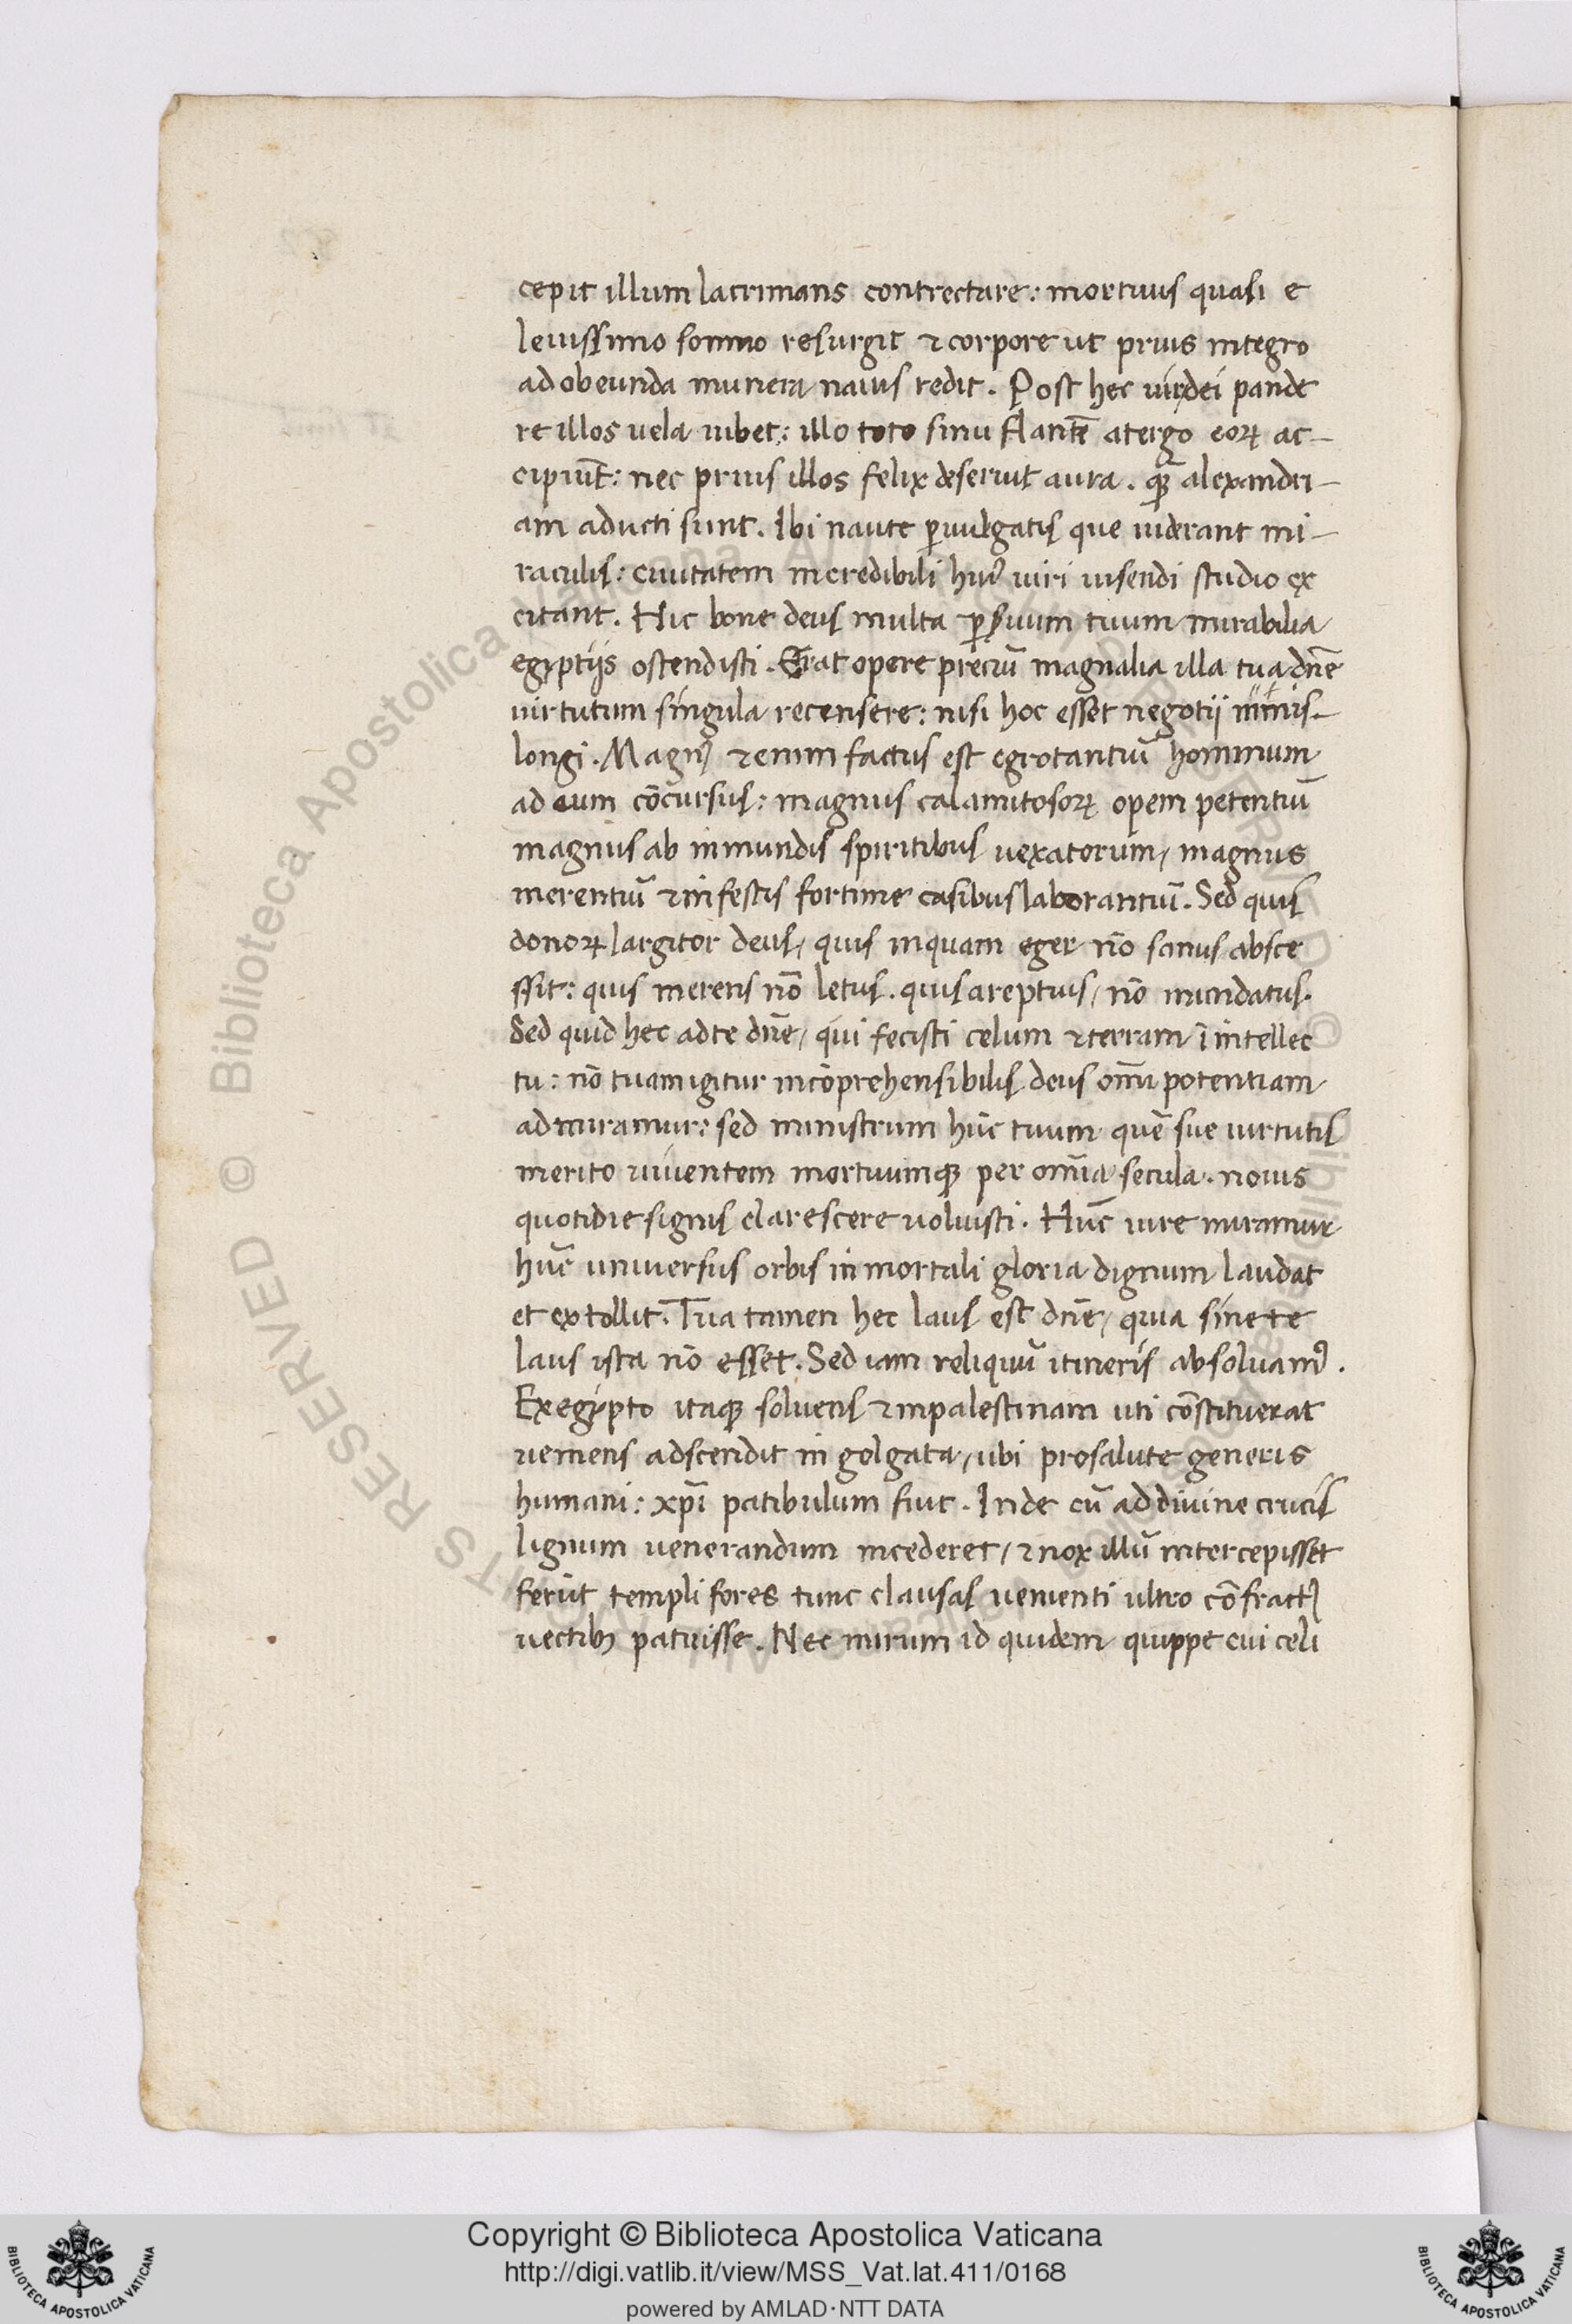 cepit illum lacrimans contrectare: mortuus quasi e
leuissimo somno resurgit & corpore ut prius integro
ad obeunda munera nauis redit. Post hec uir dei pande
re illos uela iubet: illo toto sinu flantẽ a tergo eoꝝ ac-
cipiũt: nec prius illos felix deseruit aura. qꝫ̃ alexandri-
am aducti sunt. Ibi naute ꝑuulgatis que uiderant mi-
raculis: ciuitatem incredibili huiꝰ uiri uisendi studio ex
citant. Hic bone deus multa ꝑ suum tuum mirabilia
egyptijs ostendisti. Erat opere preciũ magnalia illa tua dñe
uirtutum singula recensere: nisi hoc esset negotii nimis-
longi. Magnꝰ &enim factus est egrotantiũ hominum
ad eum cõcursus: magnus calamitosoꝝ opem petentiũ
magnus ab inmundis spiritibus uexatorum/ magnus
merentiũ & infestis fortune casibus laborantiũ. Sed quis
donoꝝ largitor deus/ quis inquam eger nõ sanus absce
ssit: quis merens nõ letus. quis areptius/ nõ mundatus.
Sed quid hec ad te dñe/ qui fecisti celum & terram ĩ intellec
tu: nõ tuam igitur incõprehensibilis deus om̃i potentiam
admiramur: sed ministrum hũc tuum quẽ sue uirtutis
merito uiuentem mortuumqꝫ per om̃ia secula. nouis
quotidie signis clarescere uoluisti. Hũc iure miramur
hũc uniuersus orbis inmortali gloria dignum laudat
et extollit. Tua tamen hec laus est dñe/ quia sine te
laus ista nõ esset. Sed iam reliquũ itineris absoluamꝰ.
Ex egypto itaqꝫ soluens & in palestinam uti cõstituerat
ueniens adscendit in golgata/ ubi pro salute generis
humani: xp̃i patibulum fiut. Inde cũ ad diuine crucis
lignum uenerandum incederet/ & nox illũ intercepisset
ferũt templi fores tunc clausas uenienti ultro cõfractꝭ
uectibꝫ patuisse. Nec mirum id quidem quippe cui celi
Copyright © Biblioteca Apostolica Vaticana
http://digi.vatlib.it/view/MSS_Vat.lat.411/0168
powered by AMLAD·NTT DATA